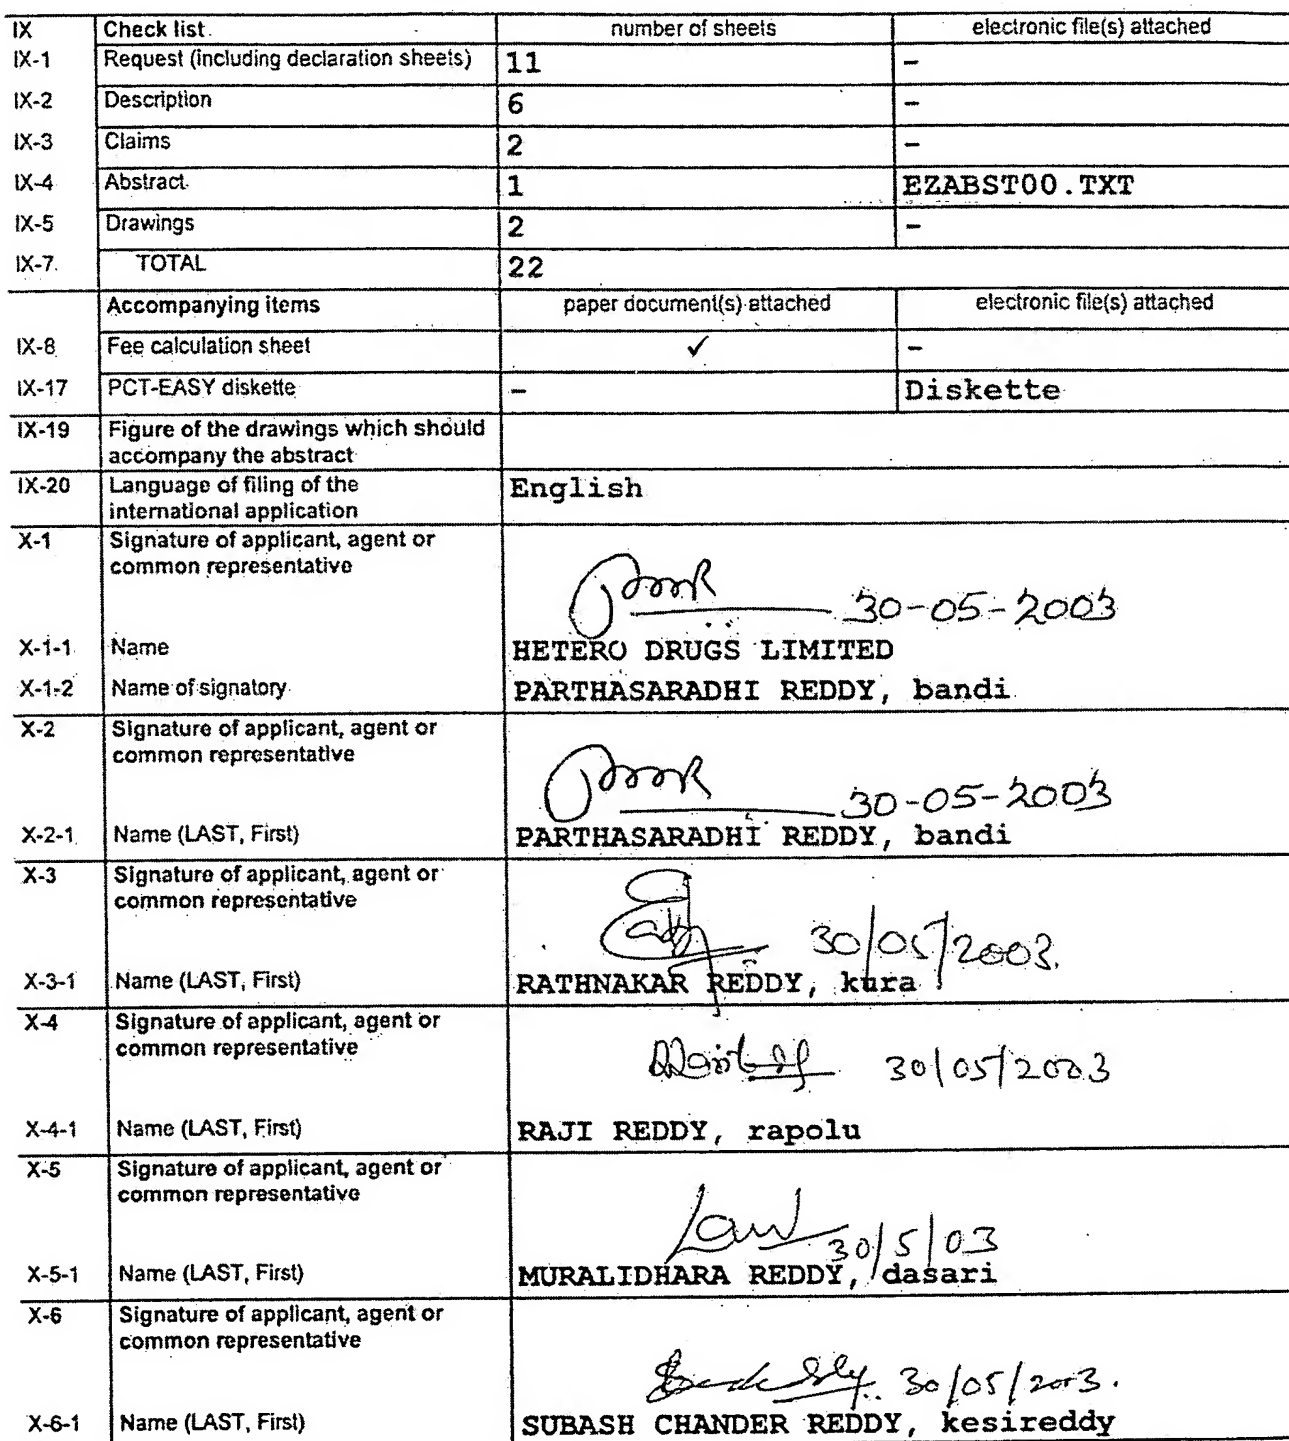 IX Check list number of sheets electronic file(s) attached
IX-1 Request (including declaration sheets) 11 -
IX-2 Description 6 -
IX-3 Claims 2 -
IX-4 Abstract 1 EZABST00.TXT
IX-5 Drawings 2 -
IX-7 TOTAL 22
Accompanying items paper document(s) attached electronic file(s) attached
IX-8 Fee calculation sheet ✓ -
IX-17 PCT-EASY diskette - Diskette
IX-19 Figure of the drawings which should
accompany the abstract
IX-20 Language of filing of the English
international application
X-1 Signature of applicant, agent or
common representative
30-05-2003
X-1-1 Name HETERO DRUGS LIMITED
X-1-2 Name of signatory PARTHASARADHI REDDY, bandi
X-2 Signature of applicant, agent or
common representative
30-05-2003
X-2-1 Name (LAST, First) PARTHASARADHI REDDY, bandi
X-3 Signature of applicant, agent or
common representative
30/05/2003.
X-3-1 Name (LAST, First) RATHNAKAR REDDY, kura
X-4 Signature of applicant, agent or
common representative
30/05/2003
X-4-1 Name (LAST, First) RAJI REDDY, rapolu
X-5 Signature of applicant, agent or
common representative
30/5/03
X-5-1 Name (LAST, First) MURALIDHARA REDDY, dasari
X-6 Signature of applicant, agent or
common representative
30/05/2003.
X-6-1 Name (LAST, First) SUBASH CHANDER REDDY, kesireddy